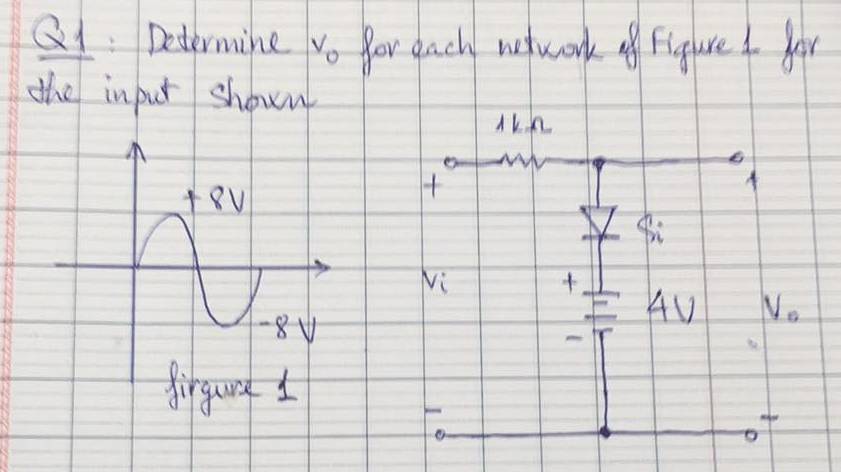 Q1: Determine vo for each network of Figure 1 for
the input shown
1kΩ
+ 8V
+
+
Si
Vi
+
4V
Vo
-8V
-
firgure 1
-
-